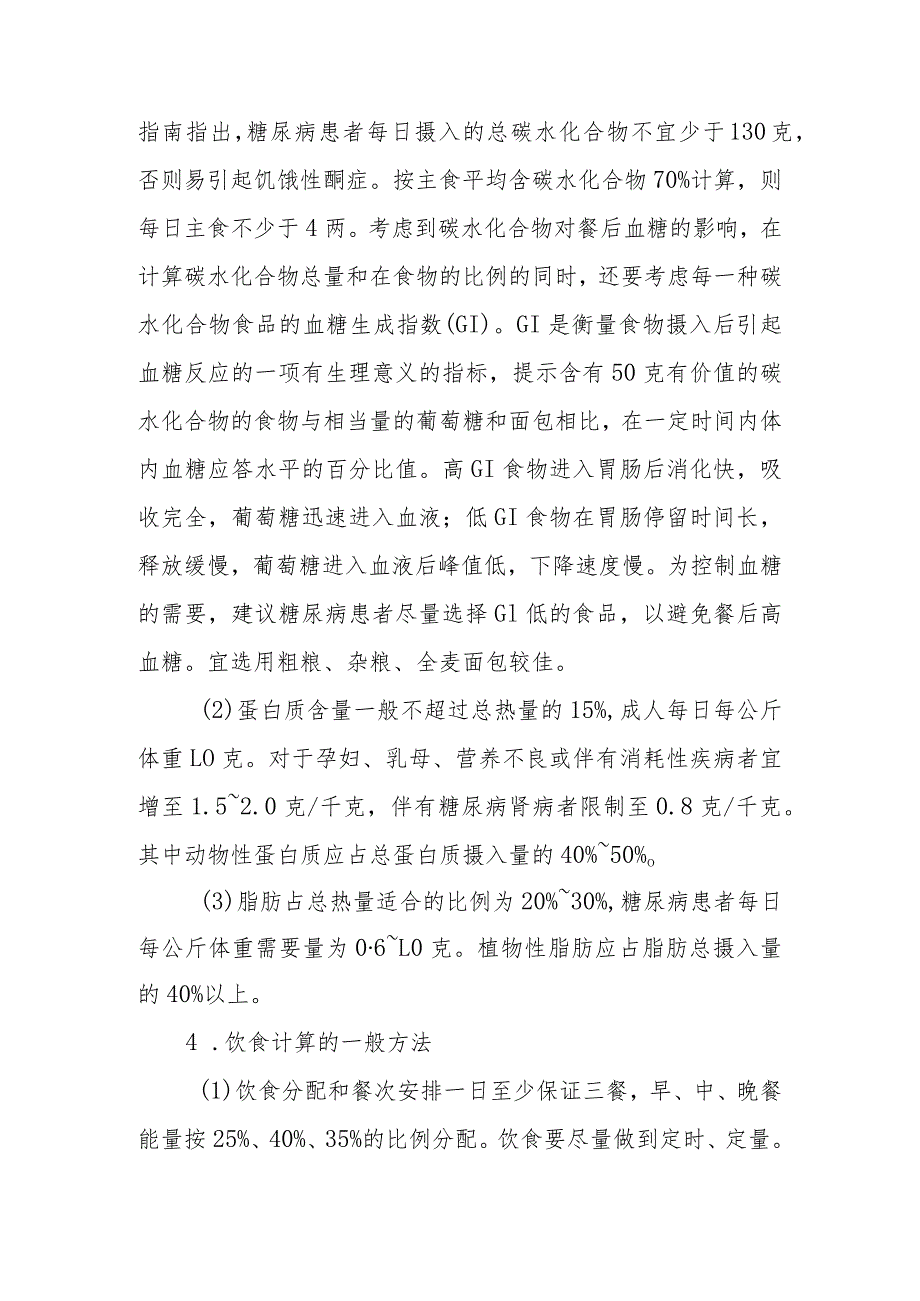 指南指出,糖尿病患者每日摄入的总碳水化合物不宜少于130克,
否则易引起饥饿性酮症。按主食平均含碳水化合物70%计算，则
每日主食不少于4两。考虑到碳水化合物对餐后血糖的影响，在
计算碳水化合物总量和在食物的比例的同时，还要考虑每一种碳
水化合物食品的血糖生成指数(GI)。GI是衡量食物摄入后引起
血糖反应的一项有生理意义的指标，提示含有50克有价值的碳
水化合物的食物与相当量的葡萄糖和面包相比，在一定时间内体
内血糖应答水平的百分比值。高GI食物进入胃肠后消化快，吸
收完全，葡萄糖迅速进入血液；低GI食物在胃肠停留时间长，
释放缓慢，葡萄糖进入血液后峰值低，下降速度慢。为控制血糖
的需要，建议糖尿病患者尽量选择Gl低的食品，以避免餐后高
血糖。宜选用粗粮、杂粮、全麦面包较佳。
(2)蛋白质含量一般不超过总热量的15%,成人每日每公斤
体重LO克。对于孕妇、乳母、营养不良或伴有消耗性疾病者宜
增至1.5~2.0克/千克，伴有糖尿病肾病者限制至0.8克/千克。
其中动物性蛋白质应占总蛋白质摄入量的40%~50%。
(3)脂肪占总热量适合的比例为20%~30%,糖尿病患者每日
每公斤体重需要量为0·6~L0克。植物性脂肪应占脂肪总摄入量
的40%以上。
4 .饮食计算的一般方法
(1)饮食分配和餐次安排一日至少保证三餐，早、中、晚餐
能量按25%、40%、35%的比例分配。饮食要尽量做到定时、定量。